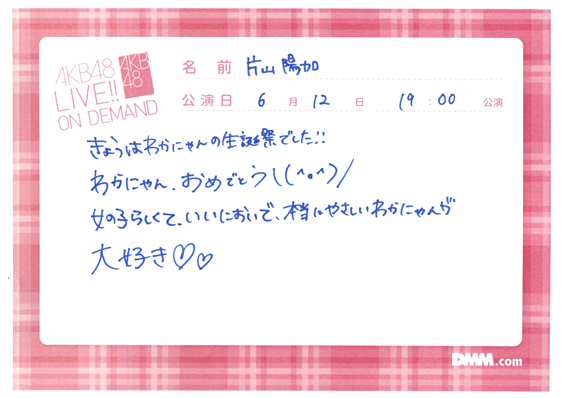 AKB48
LIVE!!
ON DEMAND
AKB
48
名前 片山陽加
公演日 6月12日 19:00 公演
きょうはわかにゃんの生誕祭でした!!
わかにゃん、おめでとう\(^o^)/
女の子らしくて、いいにおいで、本当にやさしいわかにゃんが
大好き♡♡
DMM.com